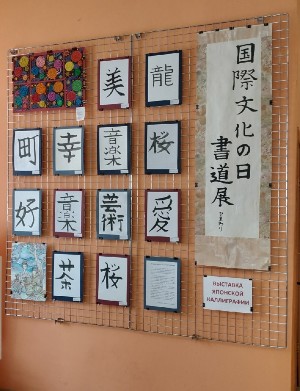 美
龍
町
幸
音楽
桜
好
音楽
芸術
愛
茶
桜
国際文化の日
書道展
ВЫСТАВКА
ЯПОНСКОЙ
КАЛЛИГРАФИИ